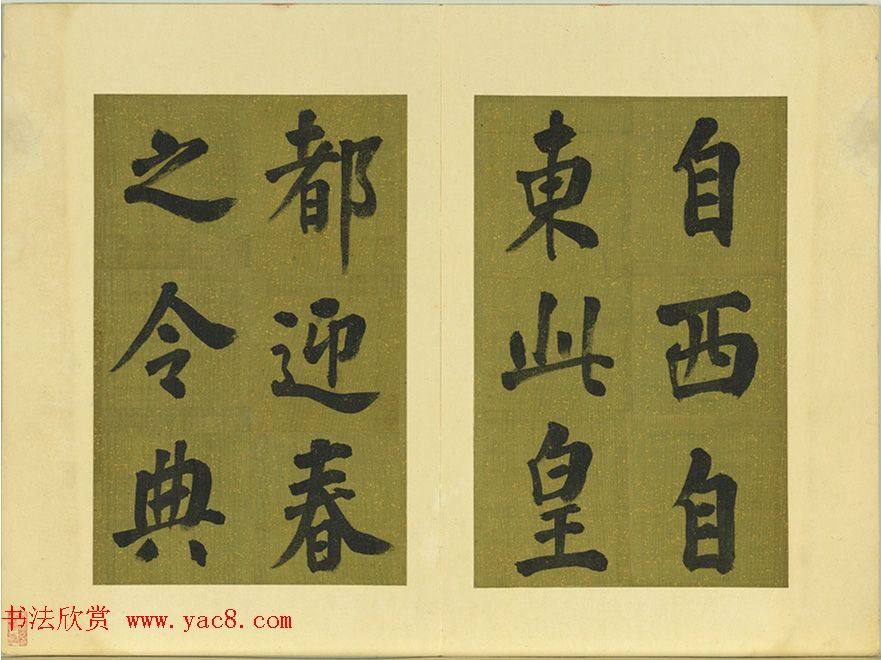 自西自
東此皇
都迎春
之令典
书法欣赏 www.yac8.com